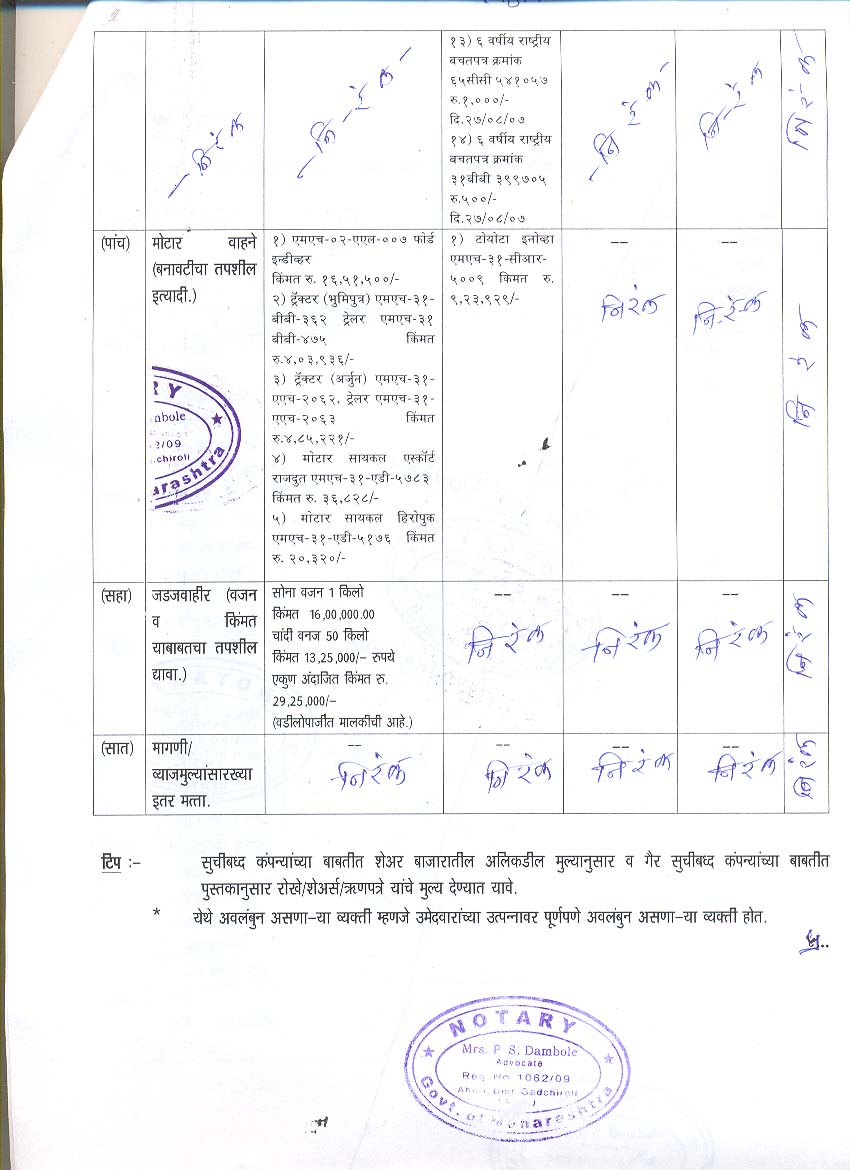 १३) ६ वर्षीय राष्ट्रीय
बचतपत्र क्रमांक
६५सीसी ५४१०५७
रु.१,०००/-
दि.२७/०८/०७
१४) ६ वर्षीय राष्ट्रीय
बचतपत्र क्रमांक
३१बीबी ३९९७०५
रु.५००/-
दि.२७/०८/०७
निरंक
निरंक
निरंक
निरंक
निरंक
(पांच)
मोटार वाहने
(बनावटीचा तपशील
इत्यादी.)
१) एमएच-०२-एएल-००७ फोर्ड
इन्डीव्हर
किंमत रु. १६,५१,५००/-
२) ट्रॅक्टर (भुमिपुत्र) एमएच-३१-
बीबी-३६२ ट्रेलर एमएच-३१
बीबी-४७५ किंमत
रु.४,०३,९३६/-
३) ट्रॅक्टर (अर्जुन) एमएच-३१-
एएच-२०६२, ट्रेलर एमएच-३१-
एएच-२०६३ किंमत
रु.४,८५,२२१/-
४) मोटार सायकल एस्कॉर्ट
राजदुत एमएच-३१-एडी-५७८३
किंमत रु. ३६,८२८/-
५) मोटार सायकल हिरोपुक
एमएच-३१-एडी-५१७६ किंमत
रु. २०,३२०/-
१) टोयोटा इनोव्हा
एमएच-३१-सीआर-
५००९ किमत रु.
९,२३,९२९/-
--
निरंक
--
निरंक
निरंक
(सहा)
जडजवाहीर (वजन
व किंमत
याबाबतचा तपशील
द्यावा.)
सोना वजन 1 किलो
किंमत 16,00,000.00
चांदी वनज 50 किलो
किंमत 13,25,000/- रुपये
एकुण अंदाजित किंमत रु.
29,25,000/-
(वडीलोपार्जीत मालकीची आहे.)
--
निरंक
--
निरंक
--
निरंक
निरंक
(सात)
मागणी/
व्याजमुल्यांसारख्या
इतर मत्ता.
--
निरंक
--
निरंक
--
निरंक
--
निरंक
निरंक
टिप :- सुचीबध्द कंपन्यांच्या बाबतीत शेअर बाजारातील अलिकडील मुल्यानुसार व गैर सुचीबध्द कंपन्यांच्या बाबतीत
पुस्तकानुसार रोखे/शेअर्स/ऋणपत्रे यांचे मुल्य देण्यात यावे.
* येथे अवलंबुन असणा-या व्यक्ती म्हणजे उमेदवारांच्या उत्पन्नावर पूर्णपणे अवलंबुन असणा-या व्यक्ती होत.
NOTARY
Mrs. P S. Dambole
Advocate
Reg. No. 1062/09
Dist. Gadchiroli
Govt. of Maharashtra